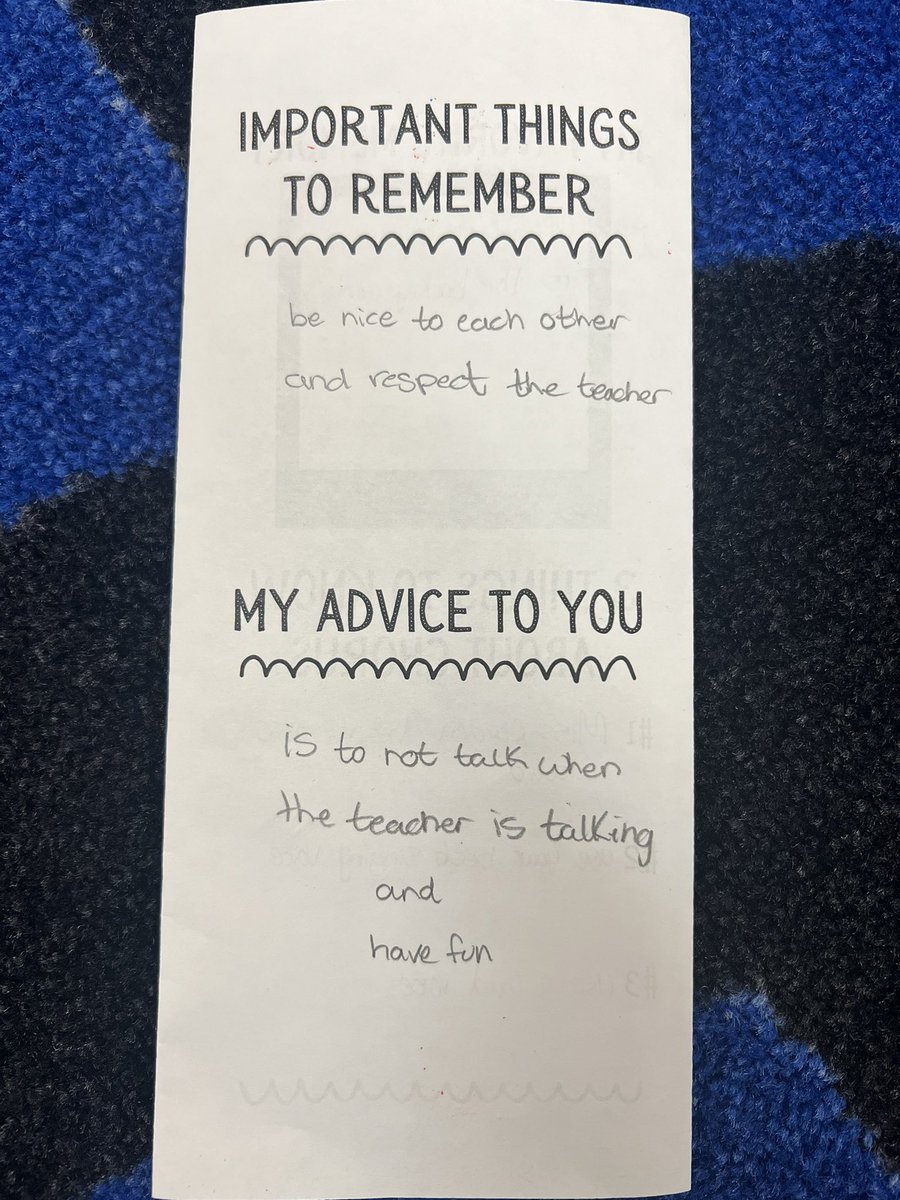 IMPORTANT THINGS
TO REMEMBER
be nice to each other
and respect the teacher
MY ADVICE TO YOU
is to not talk when
the teacher is talking
and
have fun